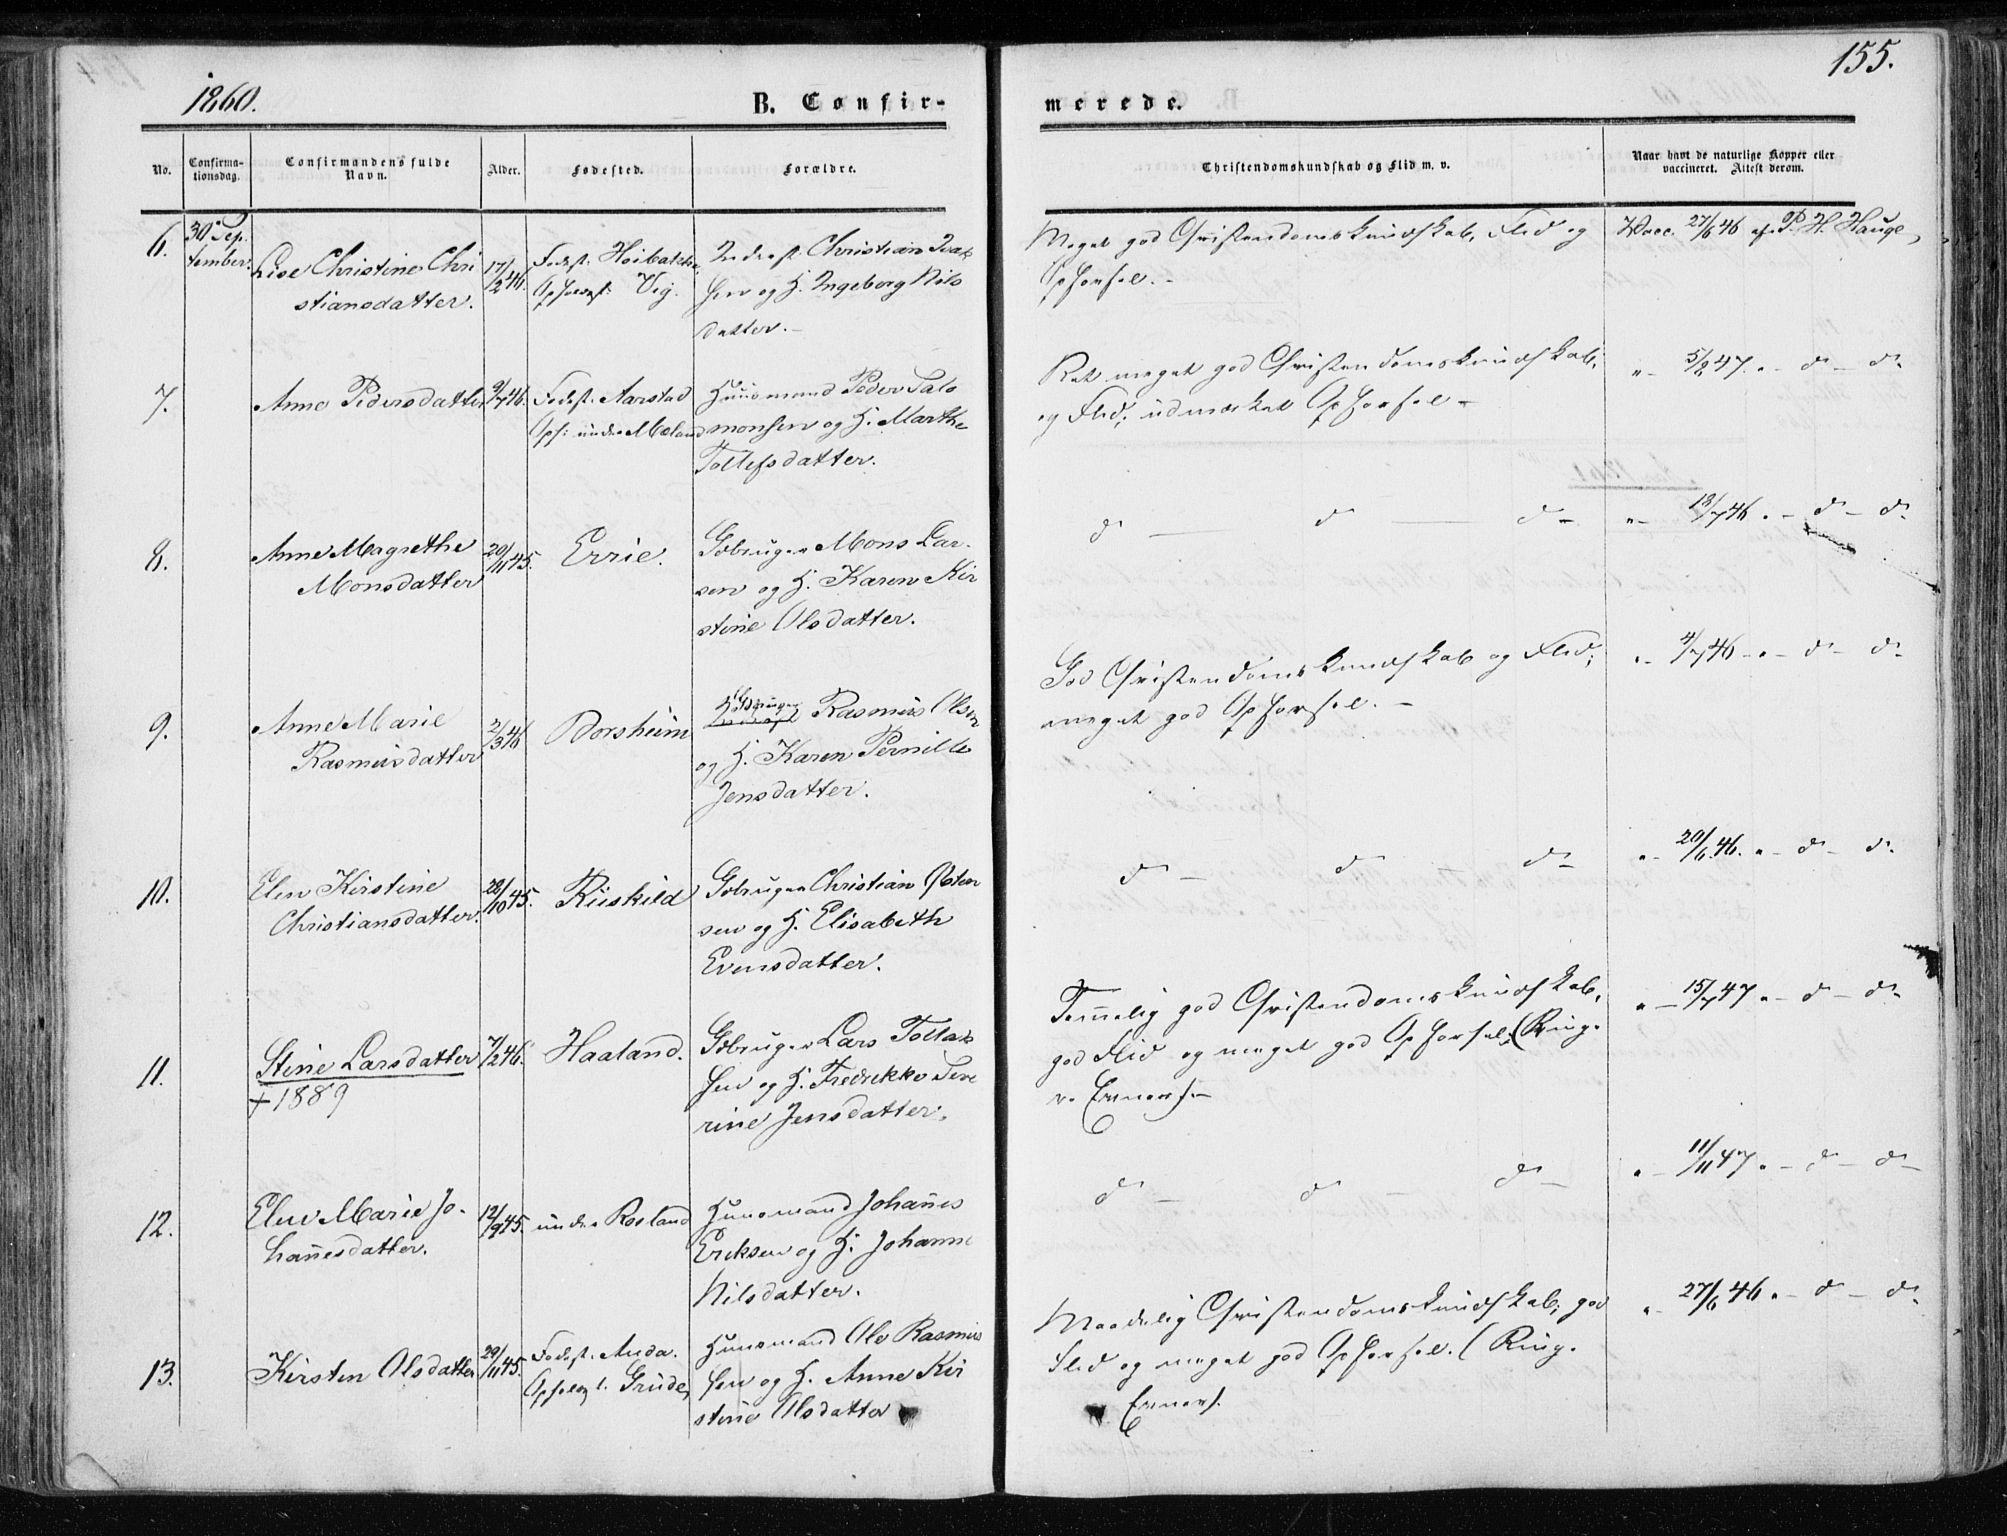 155.
1860.
B. Confir-
merede.
No.
Confirma-
tionsdag.
Confirmandens fulde
Navn.
Alder.
Fødested.
Forældre.
Christendomskundskab og Flid m. v.
Naar havt de naturlige Kopper eller
vaccineret. Attest derom.
6.
30 Sep-
tember.
Lise Christine Chri
stiansdatter.
17/2 46.
Fødest.
Opholdsst: Vig.
Inderst Christian
sen og H. Ingeborg Nils
datter.
Meget god Christendomskundskab, Flid og
Opførsel.
Vacc. 27/6 46 af P. H. Hauge
7.
Anne Pedersdatter
9/7 46.
Fødest. Aarstad
Oph: under Mæland
Huusmand Peder Salo
monsen og H. Marthe
Tollefsdatter.
Ret meget god Christendomskundskab,
og Flid; udmærket Opførsel
" 5/2 47. " - do - do
8.
Anne Magrethe
Monsdatter
20/11 45.
Errie.
Gbruger Mons Lar-
sen og H. Karen Kir
stine Olsdatter.
do - do - do
" 18/7 46 " - do - do
9.
Anne Marie
Rasmusdatter
2/3 46
Borsheim
Gbruger
Rasmus Olsen
og H. Karen Pernille
Jensdatter.
God Christendomskundskab og Flid;
meget god Opførsel.
" 4/7 46 " - do - do
10.
Elen Kirstine
Christiansdatter.
28/10 45.
Riiskild
Gbruger Christian Osten
sen og H. Elisabeth
Evensdatter.
do - do - do
" 20/6 46. " - do - do
11.
Stine Larsdatter
+ 1889
7/2 46.
Haaland.
Gbruger Lars Tollak
sen og H. Fredrikke Seve
rine Jensdatter.
Temmelig god Christendomskundskab,
god Flid og meget god Opførsel; (Ring.
Evner).
" 15/7 47 " - do - do
12.
Elen Marie Jo-
hannesdatter.
12/9 45.
under Roland
Huusmand Johannes
Eriksen og H. Johanne
Nilsdatter.
do - do - do
" 11/11 47 " - do - do
13.
Kirsten Olsdatter
29/11 45.
Fødest. Anda.
Grude
Huusmand Ole Rasmus
sen og H. Anne Kir
stine Olsdatter
Maadelig Christendomskundskab; god
Flid og meget god Opførsel. (Ring.
Evner).
" 27/6 46 " - do - do